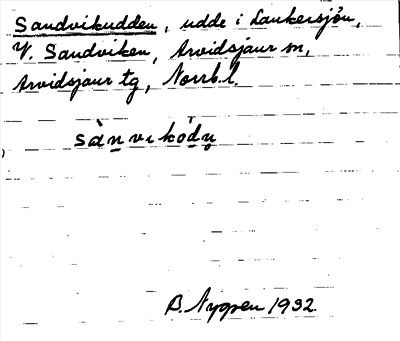 Sandvikudden, udde i Laukersjön,
V. Sandviken, Arvidsjaur sn,
Arvidsjaur tg, Norrb.l.
sànvikòdn̥
B. Nygren 1932.